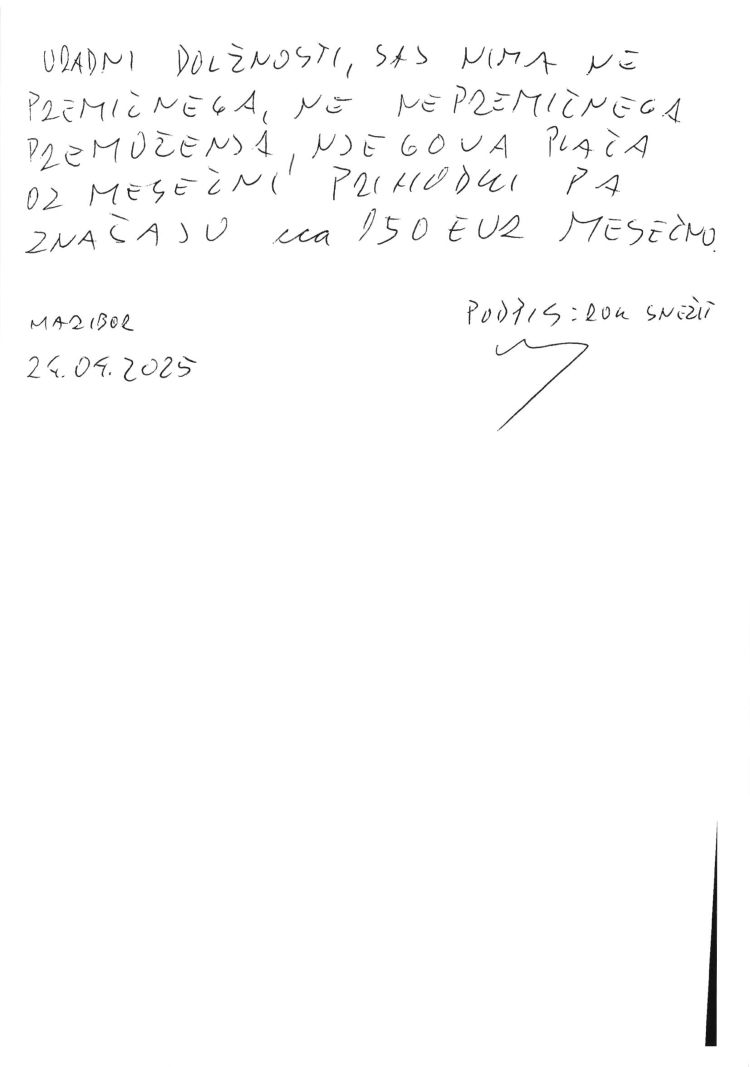 URADNI DOLŽNOSTI, SAJ NIMA NE
PREMIČNEGA, NE NEPREMIČNEGA
PREMOŽENJA, NJEGOVA PLAČA
OZ MESEČNI PRIHODKI PA
ZNAŠAJU cca 150 EUR MESEČNO.
MARIBOR
PODPIS: ROK SNEŽIČ
24.04.2025